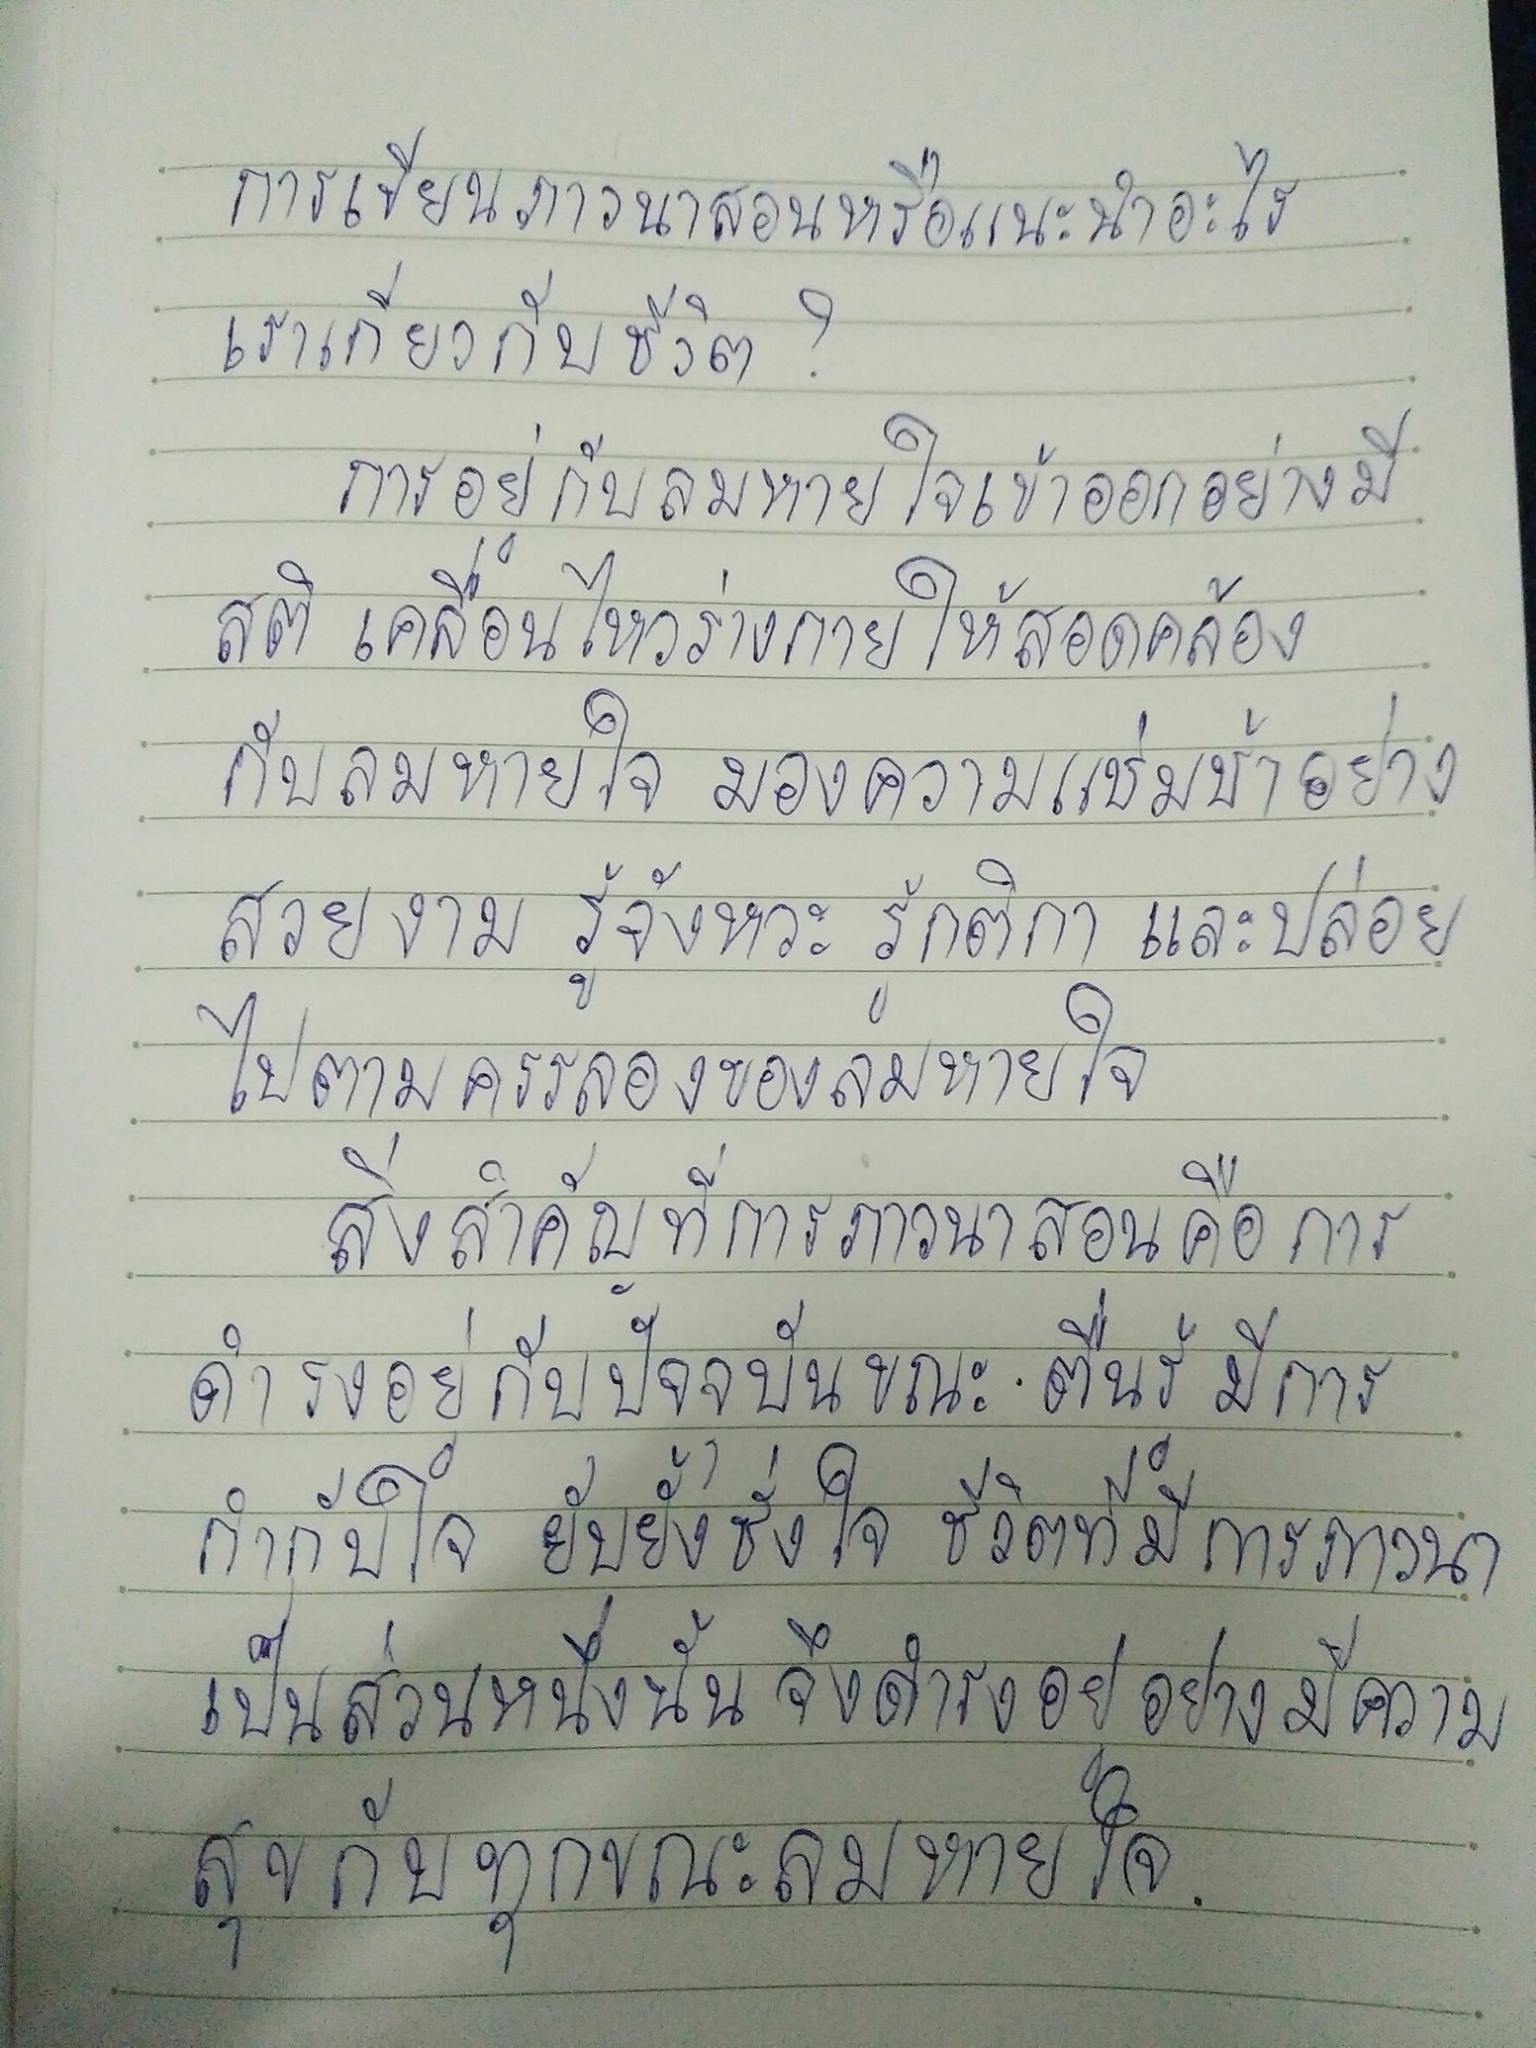 การเขียนภาวนาสอนหรือแนะนำอะไร
เราเกี่ยวกับชีวิต ?
การอยู่กับลมหายใจเข้าออกอย่างมี
สติ เคลื่อนไหวร่างกายให้สอดคล้อง
กับลมหายใจ มองความแช่มช้าอย่าง
สวยงาม รู้จังหวะ รู้กติกา และปล่อย
ไปตามครรลองของลมหายใจ
สิ่งสำคัญที่การภาวนาสอนคือ การ
ดำรงอยู่กับปัจจุบันขณะ ตื่นรู้ มีการ
กำกับใจ ยับยั้งชั่งใจ ชีวิตที่มีการภาวนา
เป็นส่วนหนึ่งนั้น จึงดำรงอยู่อย่างมีความ
สุขกับทุกขณะลมหายใจ.